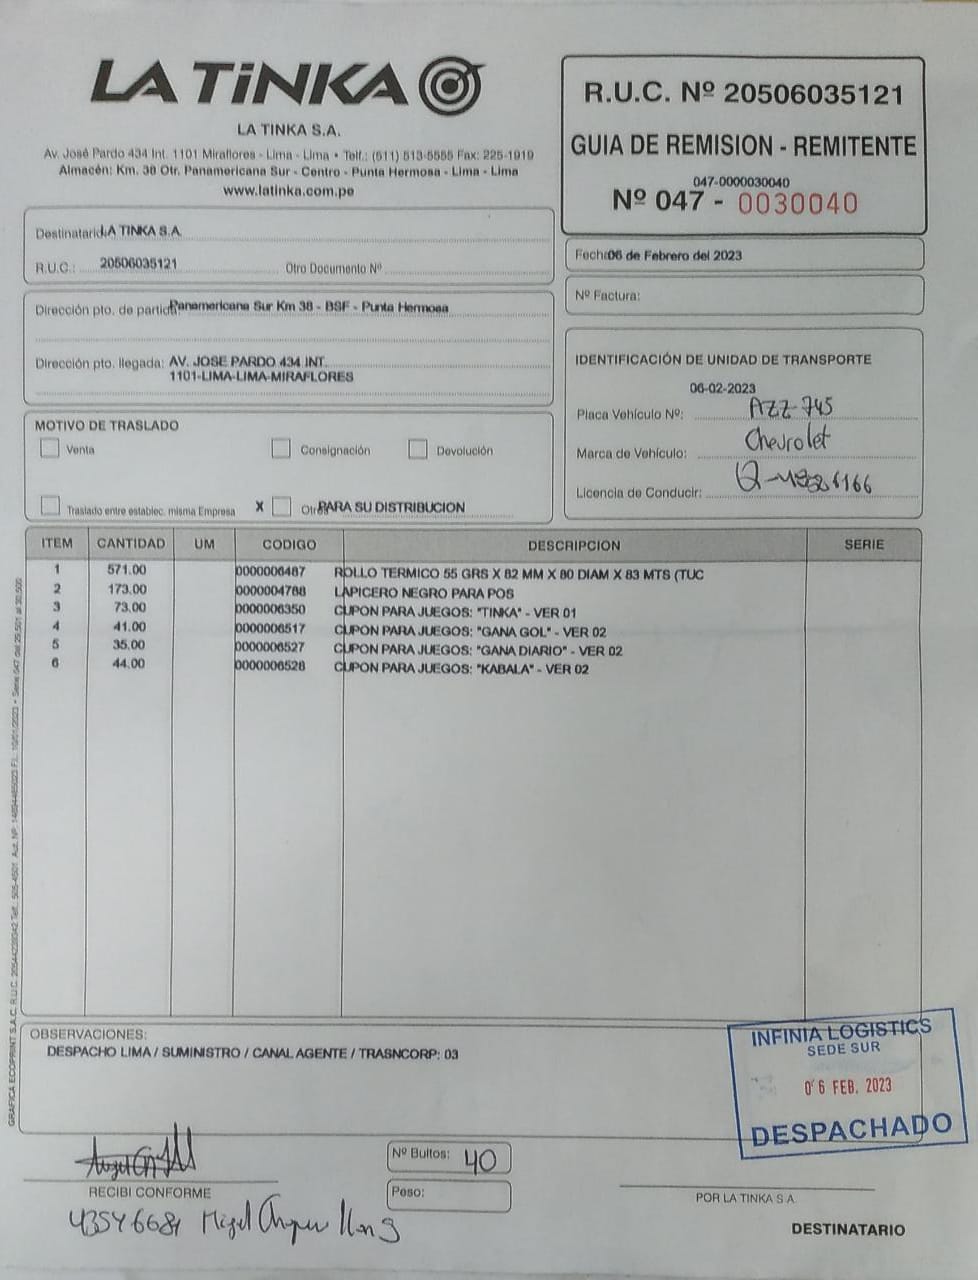 LA TiNKA
LA TINKA S.A.
Av. José Pardo 434 Int. 1101 Miraflores - Lima - Lima • Telf.: (511) 513-5555 Fax: 225-1919
Almacén: Km. 38 Otr. Panamericana Sur - Centro - Punta Hermosa - Lima - Lima
www.latinka.com.pe
R.U.C. Nº 20506035121
GUIA DE REMISION - REMITENTE
047-0000030040
Nº 047 - 0030040
Destinatario: LA TINKA S.A.
R.U.C.: 20506035121 Otro Documento Nº
Fecha: 06 de Febrero del 2023
Nº Factura:
Dirección pto. de partida: Panamericana Sur Km 38 - BSF - Punta Hermosa
Dirección pto. llegada: AV. JOSE PARDO 434 INT.
1101-LIMA-LIMA-MIRAFLORES
IDENTIFICACIÓN DE UNIDAD DE TRANSPORTE
06-02-2023
Placa Vehículo Nº: AZZ-745
Marca de Vehículo: Chevrolet
Licencia de Conducir:
MOTIVO DE TRASLADO
Venta Consignación Devolución
Traslado entre establec. misma Empresa X Otros PARA SU DISTRIBUCION
ITEM CANTIDAD UM CODIGO DESCRIPCION SERIE
1 571.00 0000006487 ROLLO TERMICO 55 GRS X 82 MM X 80 DIAM X 83 MTS (TUC
2 173.00 0000004788 LAPICERO NEGRO PARA POS
3 73.00 0000006350 CUPON PARA JUEGOS: "TINKA" - VER 01
4 41.00 0000006517 CUPON PARA JUEGOS: "GANA GOL" - VER 02
5 35.00 0000006527 CUPON PARA JUEGOS: "GANA DIARIO" - VER 02
6 44.00 0000006528 CUPON PARA JUEGOS: "KABALA" - VER 02
OBSERVACIONES:
DESPACHO LIMA / SUMINISTRO / CANAL AGENTE / TRASNCORP: 03
INFINIA LOGISTICS
SEDE SUR
06 FEB. 2023
DESPACHADO
RECIBI CONFORME
Nº Bultos: 40
Peso:
POR LA TINKA S.A.
DESTINATARIO
GRAFICA ECOPRINT S.A.C. R.U.C.